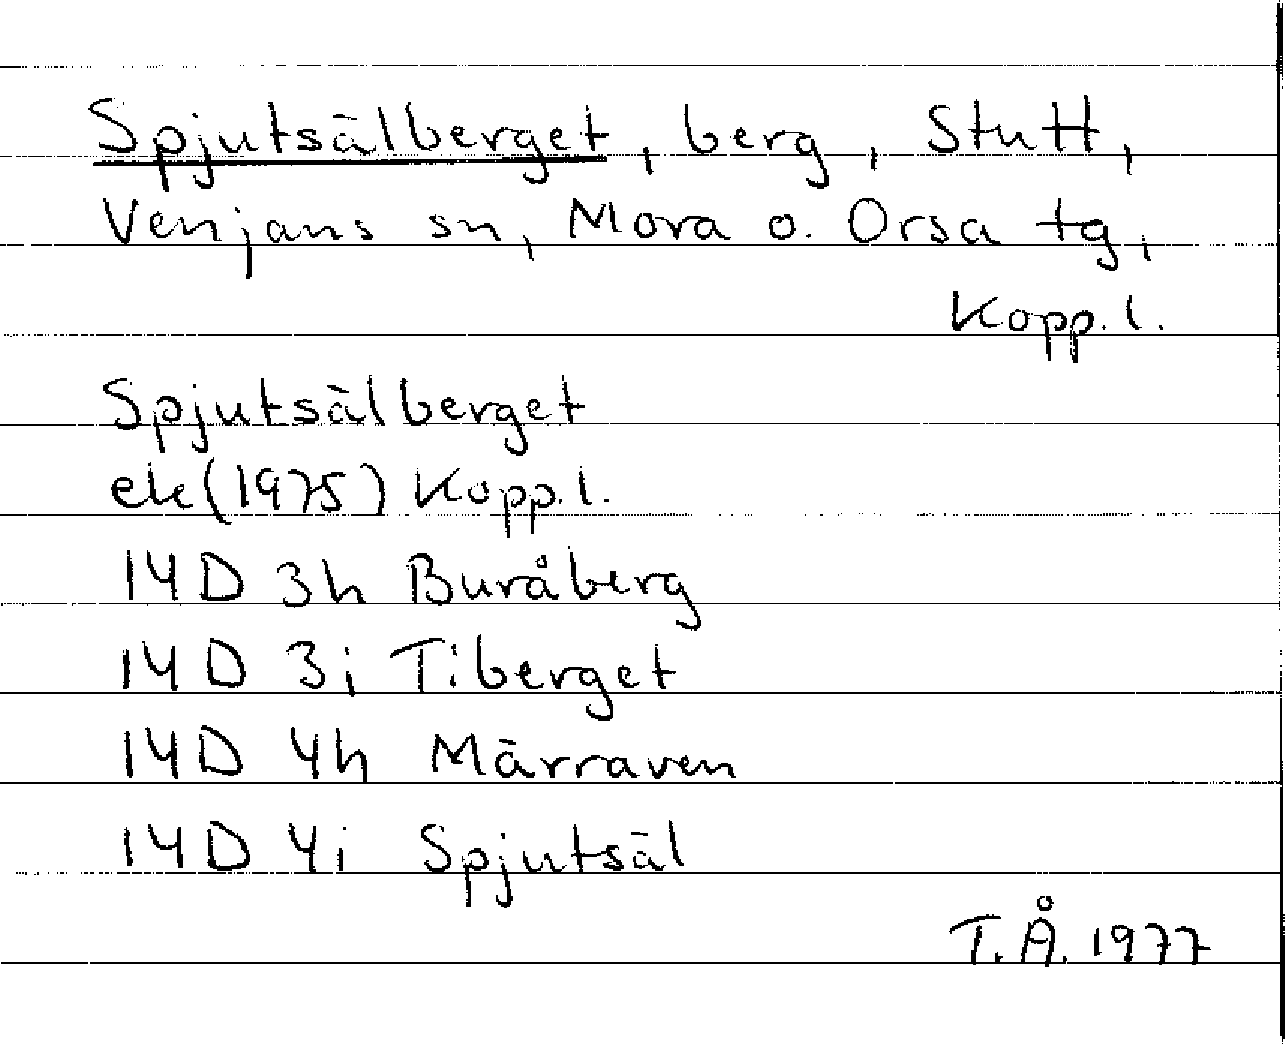 Spjutsälberget, berg, Stutt,
Venjans sn, Mora o. Orsa tg,
Kopp. l.
Spjutsälberget
ek (1975) Kopp. l.
14D 3h Buråberg
14D 3i Tiberget
14D 4h Märraven
14D 4i Spjutsäl
T.Å. 1977